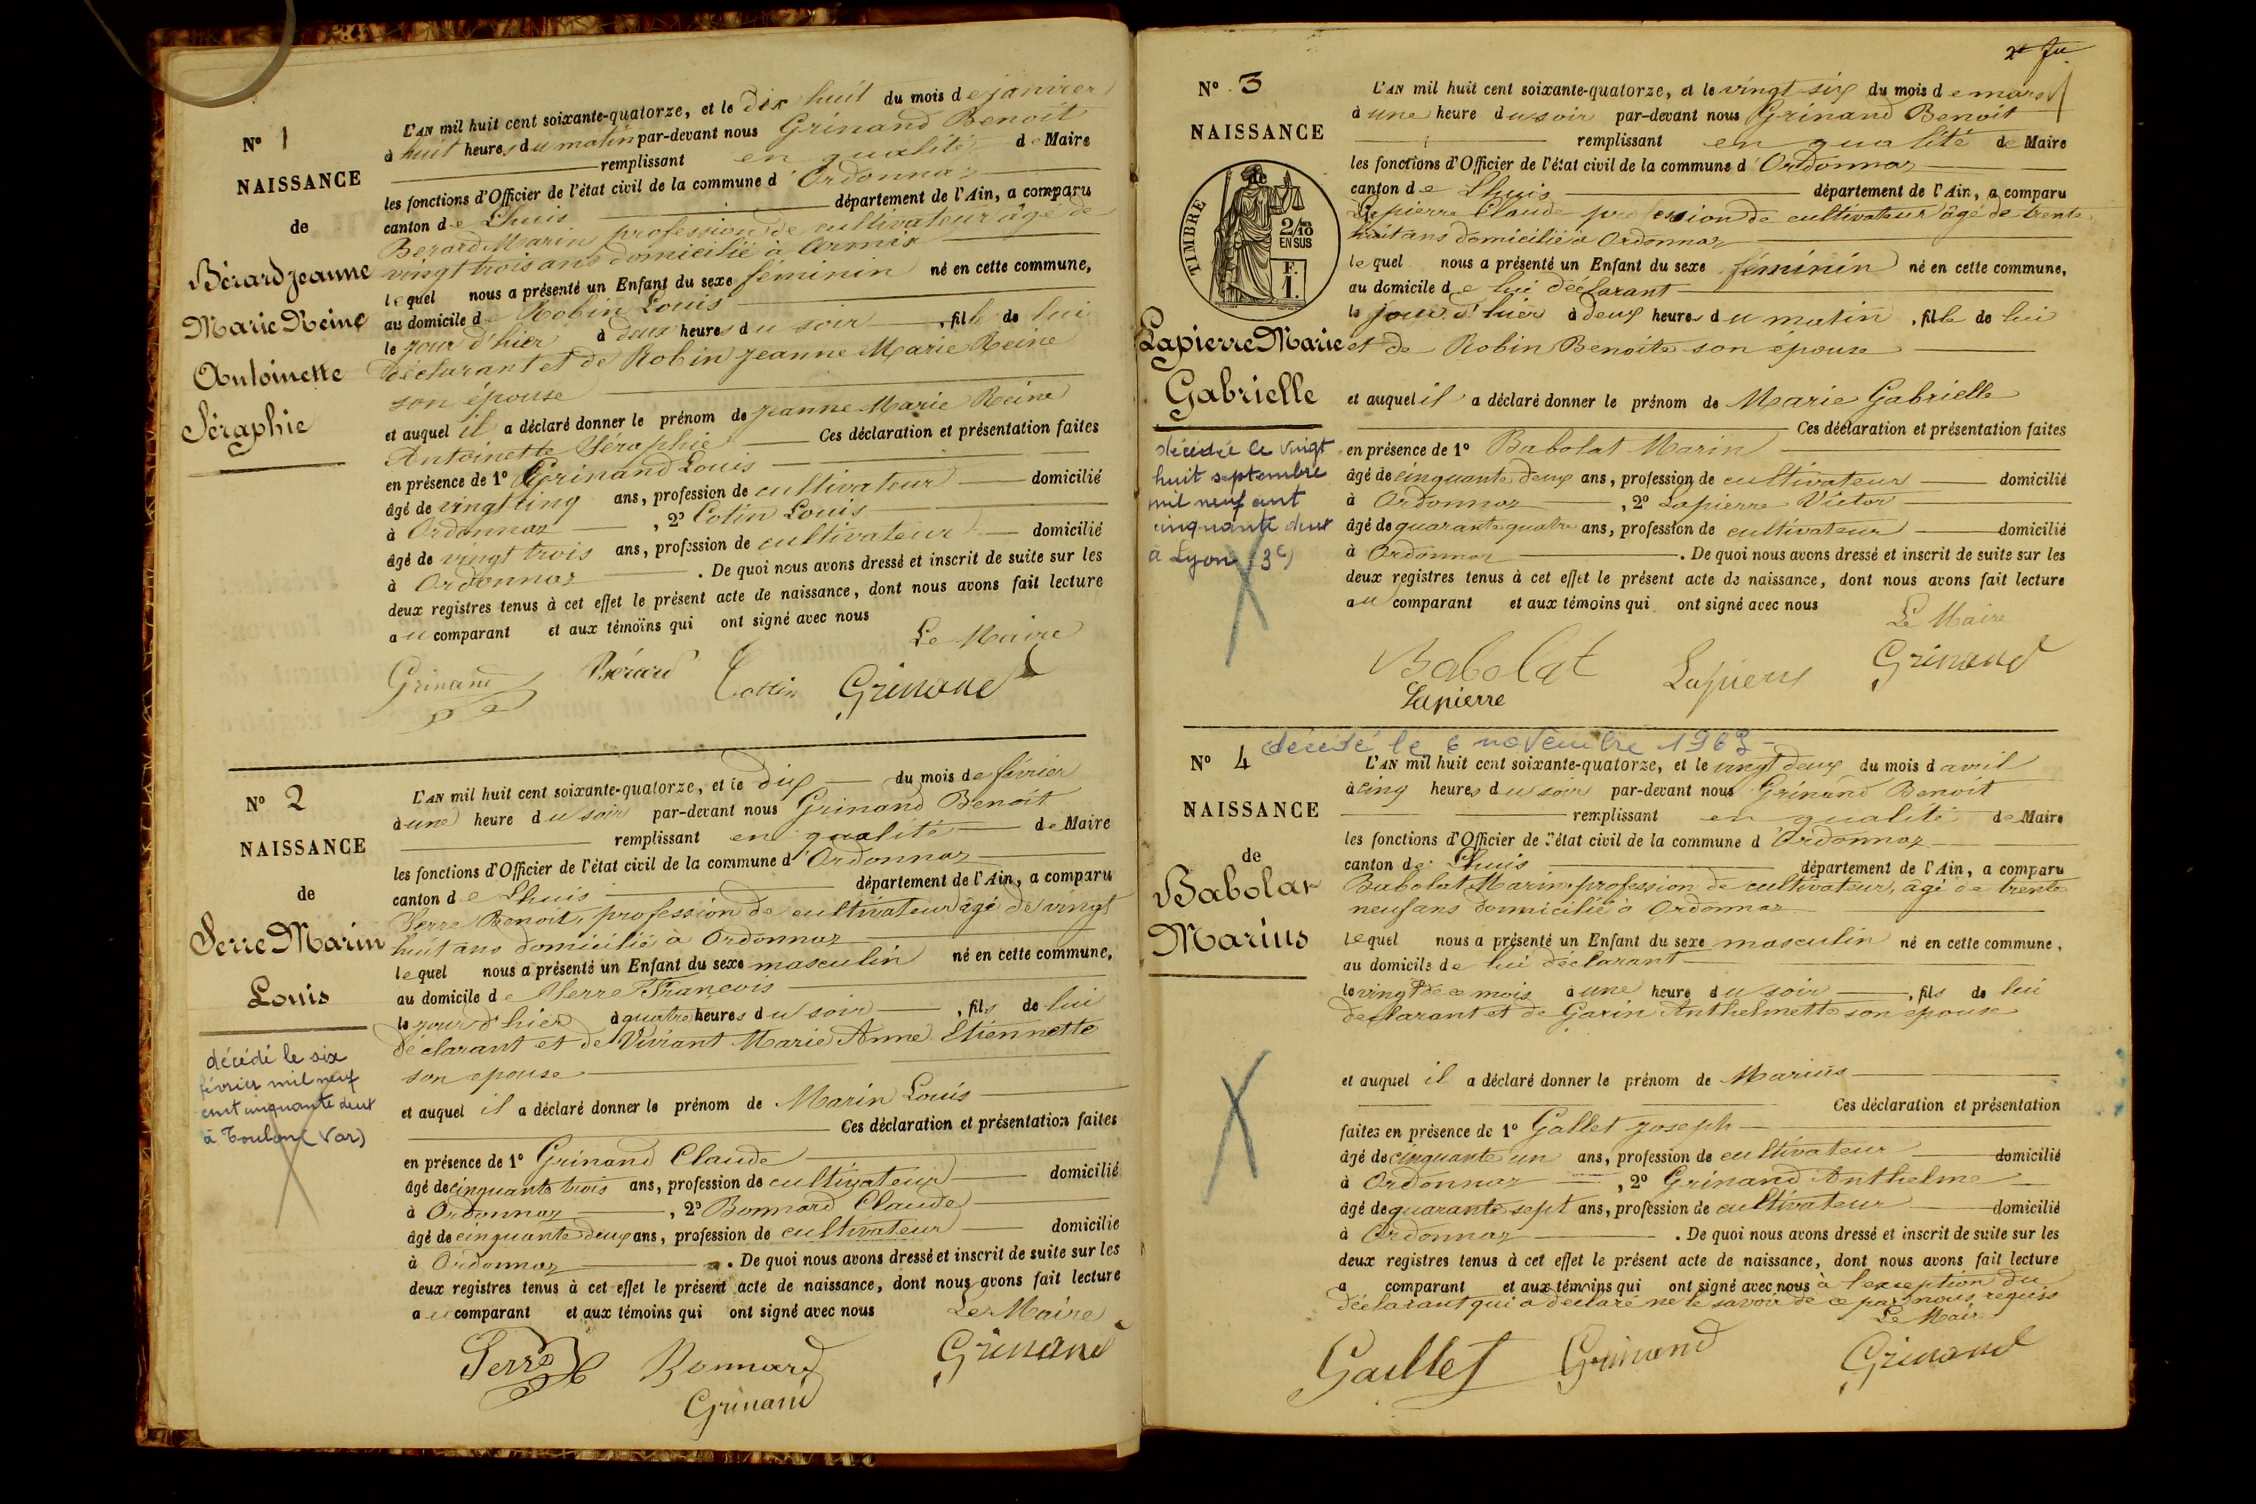 N° 1
NAISSANCE
de
Bérard Jeanne
Marie Reine
Antoinette
Séraphie
L'AN mil huit cent soixante-quatorze, et le dix huit du mois de janvier
à huit heures du matin par-devant nous Grinand Benoit
remplissant en qualité de Maire
les fonctions d'Officier de l'état civil de la commune d'Ordonnaz
canton de Lhuis département de l'Ain, a comparu
Berard Marin profession de cultivateur âgé de
vingt trois ans domicilié à Armix
lequel nous a présenté un Enfant du sexe féminin né en cette commune,
au domicile de Robin Louis
le jour d'hier à deux heures du soir, fille de lui
déclarant et de Robin Jeanne Marie Reine
son épouse
et auquel il a déclaré donner le prénom de Jeanne Marie Reine
Antoinette Séraphie Ces déclaration et présentation faites
en présence de 1° Grinand Louis
âgé de vingt cinq ans, profession de cultivateur domicilié
à Ordonnaz, 2° Cotin Louis
âgé de vingt trois ans, profession de cultivateur domicilié
à Ordonnaz. De quoi nous avons dressé et inscrit de suite sur les
deux registres tenus à cet effet le présent acte de naissance, dont nous avons fait lecture
au comparant et aux témoins qui ont signé avec nous
Le Maire
Grinand Bérard Cottin Grinand
N° 2
NAISSANCE
de
Serre Marin
Louis
décédé le six
février mil neuf
cent cinquante deux
à Toulon (Var)
L'AN mil huit cent soixante-quatorze, et le dix du mois de février
à une heure du soir par-devant nous Grinand Benoit
remplissant en qualité de Maire
les fonctions d'Officier de l'état civil de la commune d'Ordonnaz
canton de Lhuis département de l'Ain, a comparu
Serre Benoit, profession de cultivateur âgé de vingt
huit ans domicilié à Ordonnaz
lequel nous a présenté un Enfant du sexe masculin né en cette commune,
au domicile de Serre François
le jour d'hier à quatre heures du soir, fils de lui
déclarant et de Viviant Marie Anne Etiennette
son epouse
et auquel il a déclaré donner le prénom de Marin Louis
Ces déclaration et présentation faites
en présence de 1° Grinand Claude
âgé de cinquante trois ans, profession de cultivateur domicilié
à Ordonnaz, 2° Bonnard Claude
âgé de cinquante deux ans, profession de cultivateur domicilié
à Ordonnaz. De quoi nous avons dressé et inscrit de suite sur les
deux registres tenus à cet effet le présent acte de naissance, dont nous avons fait lecture
au comparant et aux témoins qui ont signé avec nous
Le Maire
Serre Bonnard Grinand
Grinand
N° 3
NAISSANCE
de
TIMBRE
2/10
EN SUS
F.
1.
Lapierre Marie
Gabrielle
décédée le vingt
huit septembre
mil neuf cent
cinquante deux
à Lyon (3e)
L'AN mil huit cent soixante-quatorze, et le vingt six du mois de mars
à une heure du soir par-devant nous Grinand Benoit
remplissant en qualité de Maire
les fonctions d'Officier de l'état civil de la commune d'Ordonnaz
canton de Lhuis département de l'Ain, a comparu
Lapierre Claude profession de cultivateur âgé de trente
huit ans domicilié à Ordonnaz
lequel nous a présenté un Enfant du sexe féminin né en cette commune,
au domicile de lui déclarant
le jour d'hier à deux heures du matin, fille de lui
et de Robin Benoite son épouse
et auquel il a déclaré donner le prénom de Marie Gabrielle
Ces déclaration et présentation faites
en présence de 1° Babolat Marin
âgé de cinquante deux ans, profession de cultivateur domicilié
à Ordonnaz, 2° Lapierre Victor
âgé de quarante quatre ans, profession de cultivateur domicilié
à Ordonnaz. De quoi nous avons dressé et inscrit de suite sur les
deux registres tenus à cet effet le présent acte de naissance, dont nous avons fait lecture
au comparant et aux témoins qui ont signé avec nous
Le Maire
Babolat Lapierre Grinand
Lapierre
N° 4
décédé le 6 novembre
NAISSANCE
de
Babolat
Marius
L'AN mil huit cent soixante-quatorze, et le vingt deux du mois d'avril
à cinq heures du soir par-devant nous Grinand Benoit
remplissant en qualité de Maire
les fonctions d'Officier de l'état civil de la commune d'Ordonnaz
canton de Lhuis département de l'Ain, a comparu
Babolat Marin profession de cultivateur, âgé de trente
neuf ans domicilié à Ordonnaz
lequel nous a présenté un Enfant du sexe masculin né en cette commune,
au domicile de lui déclarant
le vingt de ce mois à une heure du soir, fils de lui
déclarant et de Garin Anthelmette son epouse
et auquel il a déclaré donner le prénom de Marius
Ces déclaration et présentation
faites en présence de 1° Gallet Joseph
âgé de cinquante un ans, profession de cultivateur domicilié
à Ordonnaz, 2° Grinand Anthelme
âgé de quarante sept ans, profession de cultivateur domicilié
à Ordonnaz. De quoi nous avons dressé et inscrit de suite sur les
deux registres tenus à cet effet le présent acte de naissance, dont nous avons fait lecture
a comparant et aux témoins qui ont signé avec nous à l'exception du
déclarant qui a déclaré ne le savoir de ce par nous requis
Le Maire
Gaillet Grinand Grinand